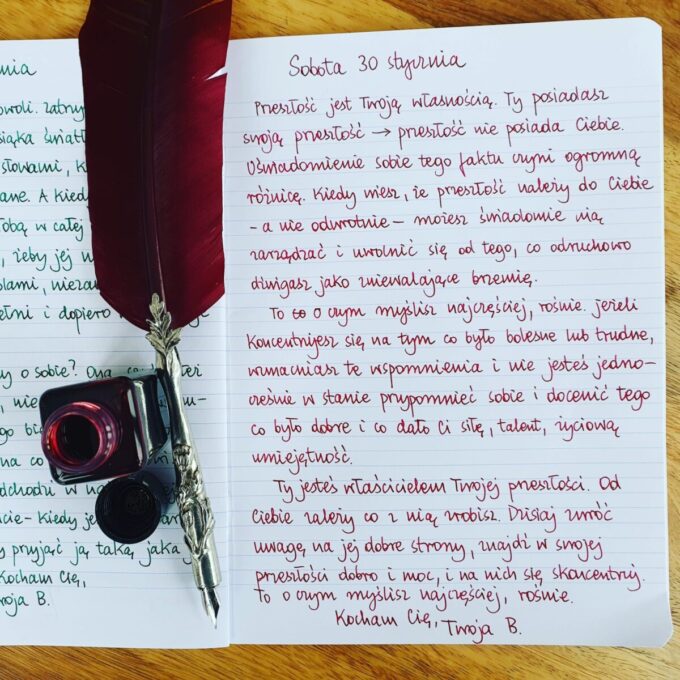 nia
woli. Zatrzy
siąka światł
słowami, k
ane. A kied
obą w całej
, żeby jej w
lami, nieza
ełni i dopiero
y o sobie? Ona
, nie
go bi
na co
dchodu w na
cie - kiedy je
y przyjąć ją taką, jaka j
Kocham Cię,
woja B.
Sobota 30 stycznia
Przeszłość jest Twoją własnością. Ty posiadasz
swoją przeszłość → przeszłość nie posiada Ciebie.
Uświadomienie sobie tego faktu czyni ogromną
różnicę. Kiedy wiesz, że przeszłość należy do Ciebie
- a nie odwrotnie - możesz świadomie nią
zarządzać i uwolnić się od tego, co odruchowo
dźwigasz jako zniewalające brzemię.
To co o czym myślisz najczęściej, rośnie. Jeżeli
koncentrujesz się na tym co było bolesne lub trudne,
wzmacniasz te wspomnienia i nie jesteś jedno-
cześnie w stanie przypomnieć sobie i docenić tego
co było dobre i co dało Ci siłę, talent, życiową
umiejętność.
Ty jesteś właścicielem Twojej przeszłości. Od
Ciebie zależy co z nią zrobisz. Dzisiaj zwróć
uwagę na jej dobre strony, znajdź w swojej
przeszłości dobro i moc, i na nich się skoncentruj.
To o czym myślisz najczęściej, rośnie.
Kocham Cię,
Twoja B.